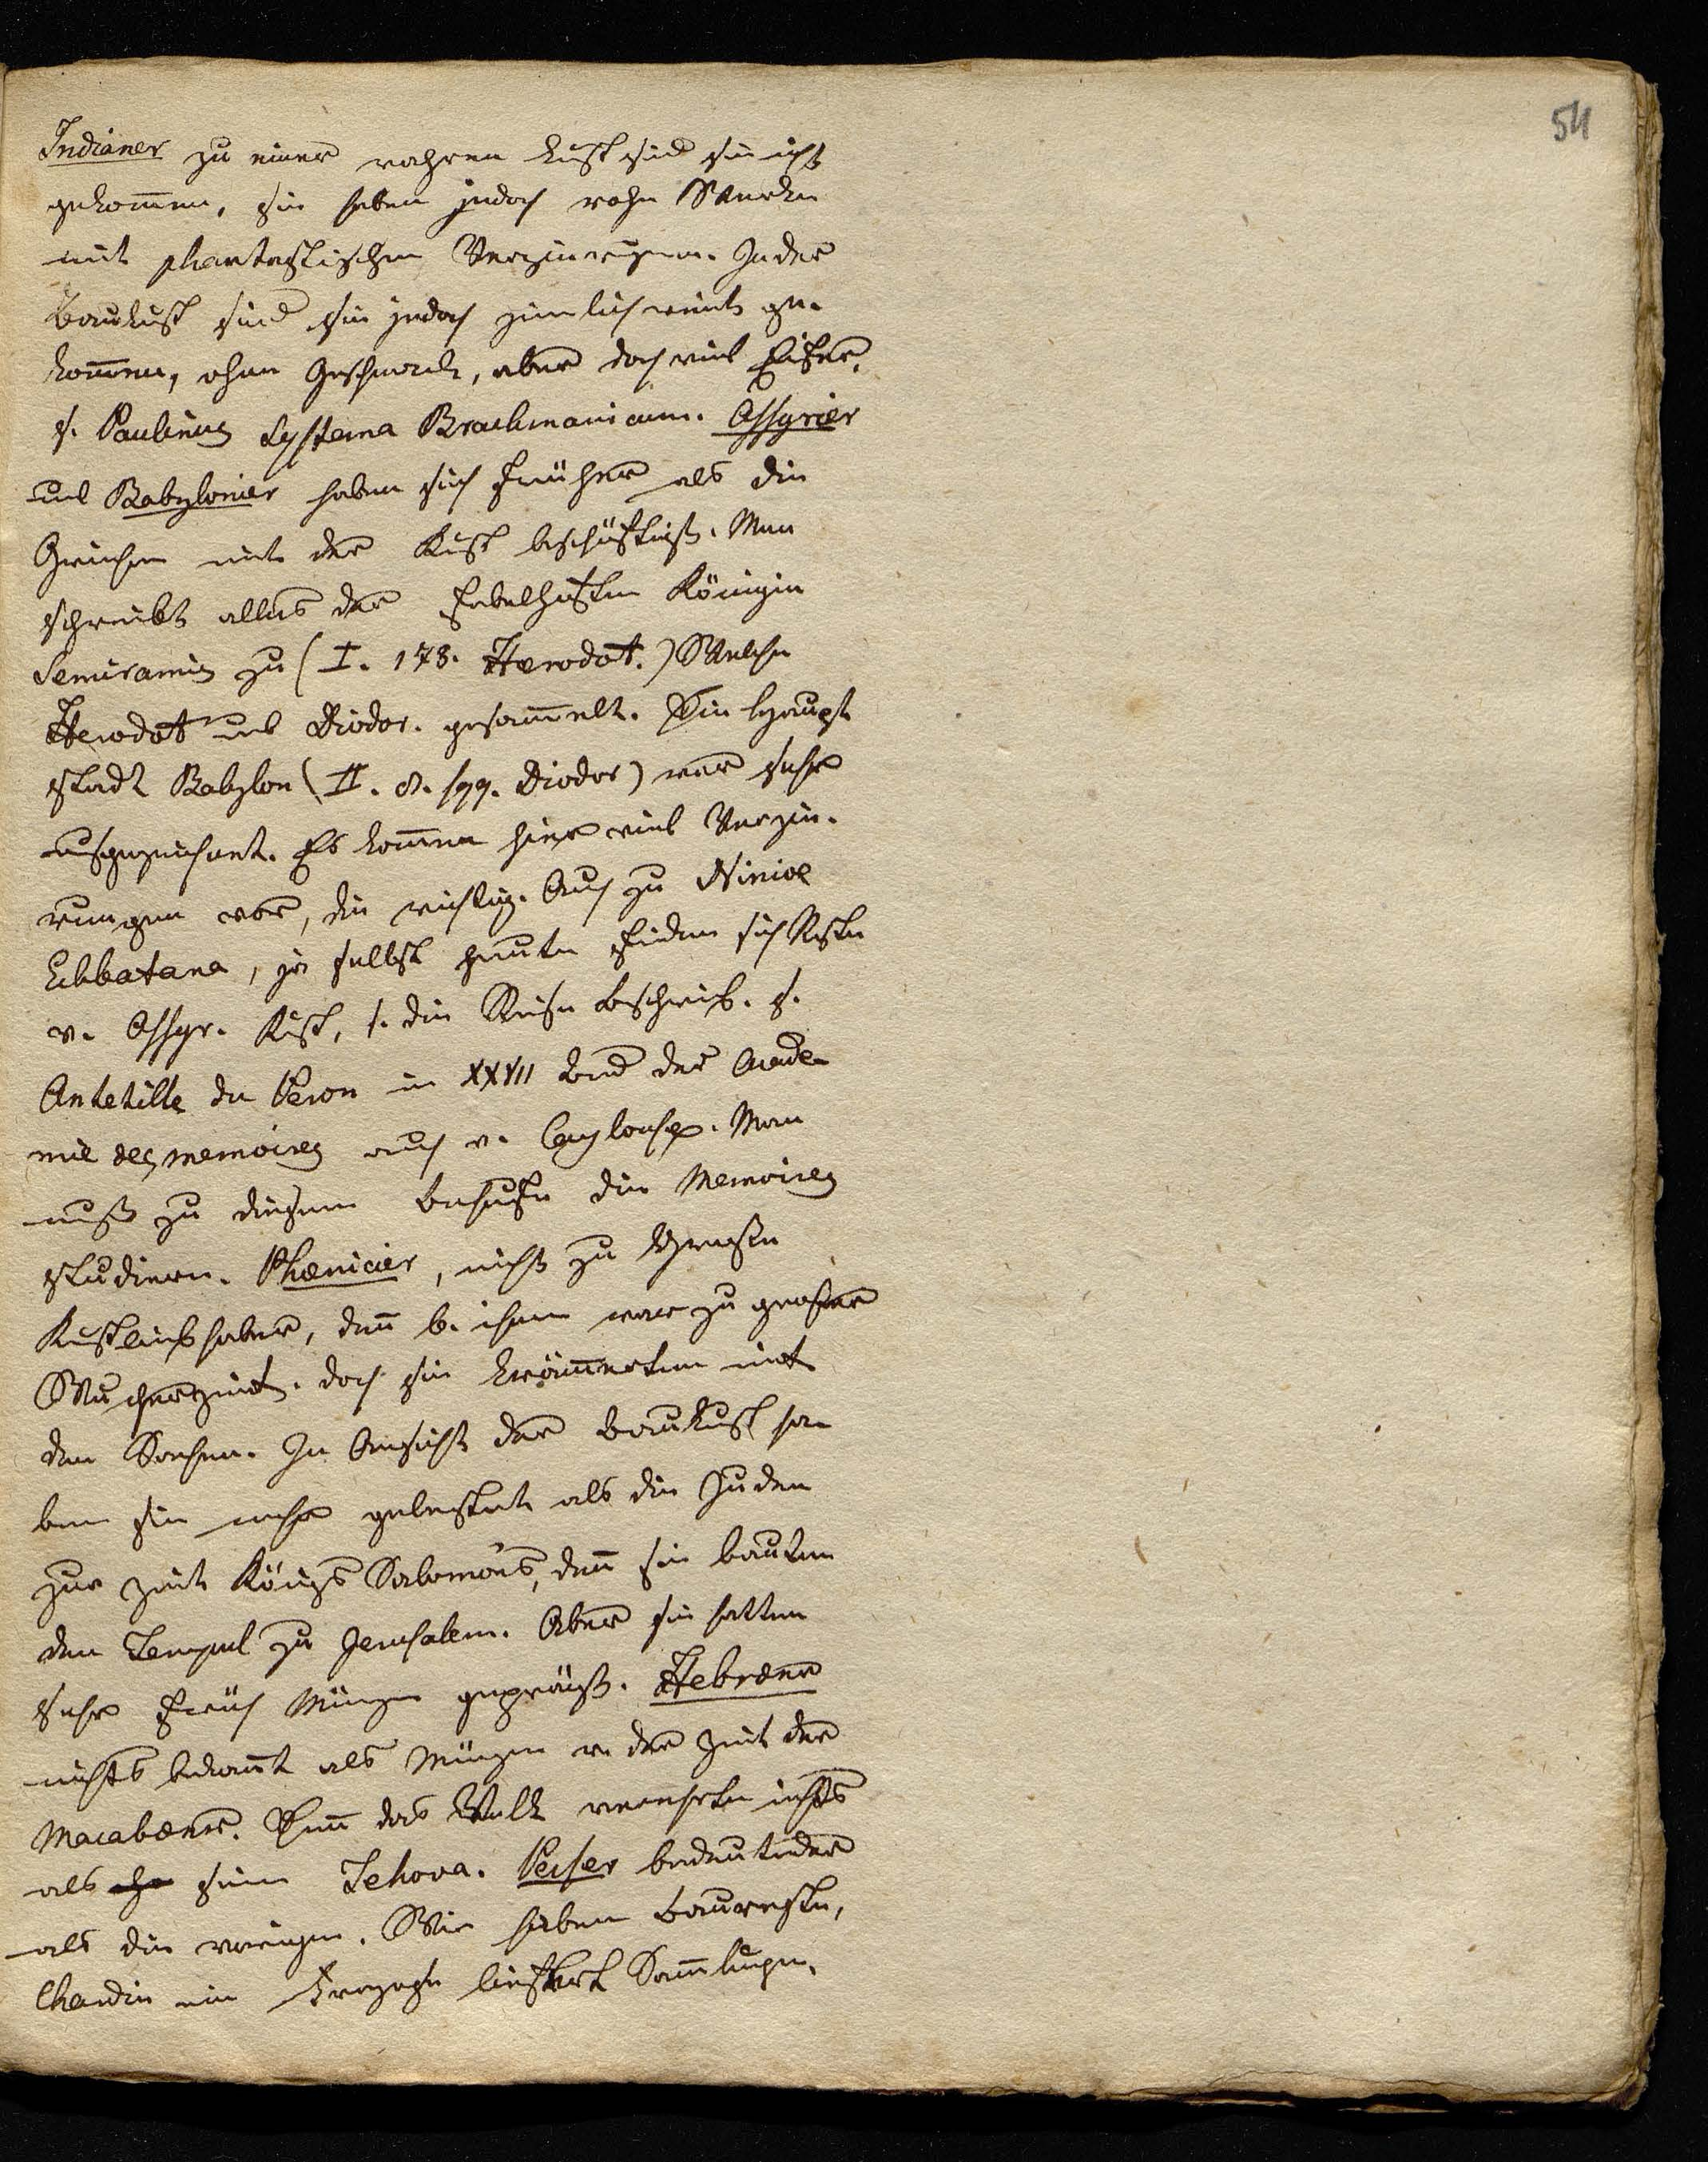 54
Indianer zu einer wahren Kust sind sie nicht
gekom̅en, sie haben jedoch rohe Wercke
mit phantastischen Verzierungen. In der
Baukust sind sie jedoch zimlich weit ge-
kom̅en, ohne Geschmack, aber doch viel Eifer.
s. Paulinus Systema Brachmanicum. Assyrier
und Babylonier haben sich früher als die
Griechen mit der Kust beschäftigt. Man
schreibt alles der fabelhaften Königin
Semiramis zu (I. 178. Herodot.) Welche
Herodot und Diodor. gesam̅elt. Die Haupt
stadt Babylon (II. 8. sqq. Diodor) war sehr
ausgezeichnet. Es kom̅en hier viel Verzie-
rungen vor, die wichtig. Auch zu Ninive
Ecbatana, ja selbst heute finden sich Reste
v. Assyr. Kust, s. die Reise Beschreib. s.
Anketille du Peron in XXVII Bnd der Acade-
mie des memoires auch v. Caylous. Man
muß zu diesem Behufe die Memoires
studieren. Phœnicier, nicht zu große
Kustliebhaber, den̅ b. ihnen war zu großer
Wuchergeist. doch sie kräm̅erten mit
den Sachen. In Ansicht der Baukust ha-
ben sie mehr geleistet als die Juden
zur Zeit Königs Salomons, den̅ sie bauten
den Tempel zu Jerusalem. Aber sie hatten
sehr früh Münzen geprägt. Hebræer
nichts bekan̅t als Münzen v. der Zeit der
Macabæer. Den̅ das Volk verehrte nichts
als seinen Jehova. Perser bedeutender
als die vorigen. Wir haben Baureste,
Chardin ein Franzose liefert Sam̅lungen.